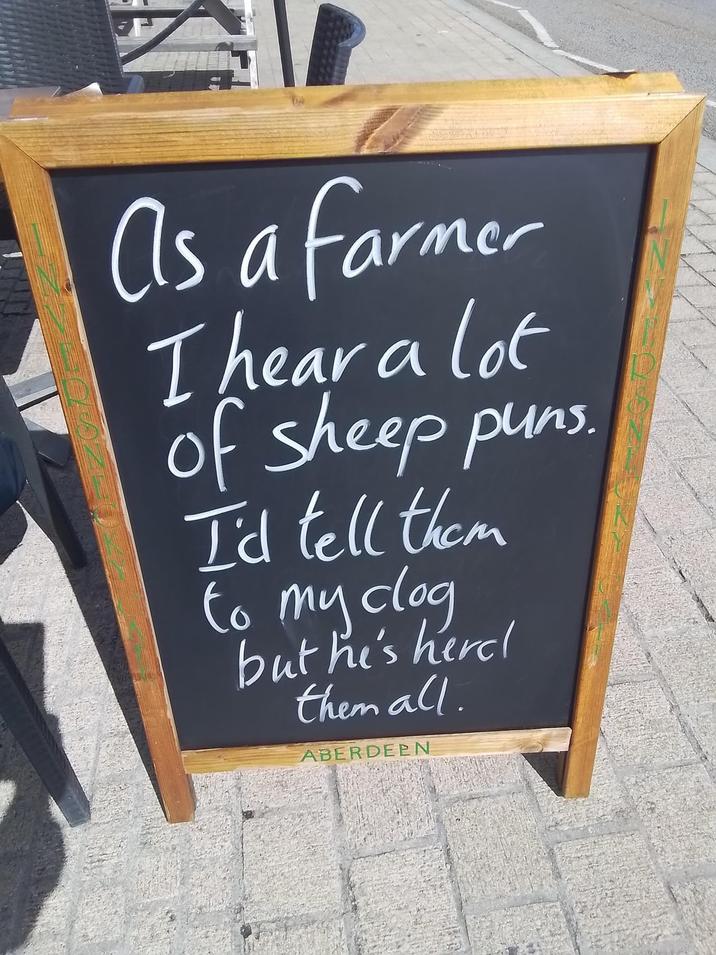 As a farmer
I hear a lot
of sheep puns.
I'd tell them
to my dog
but he's herd
them all.
INVERSNECKY CAFE
INVERSNECKY CAFE
ABERDEEN